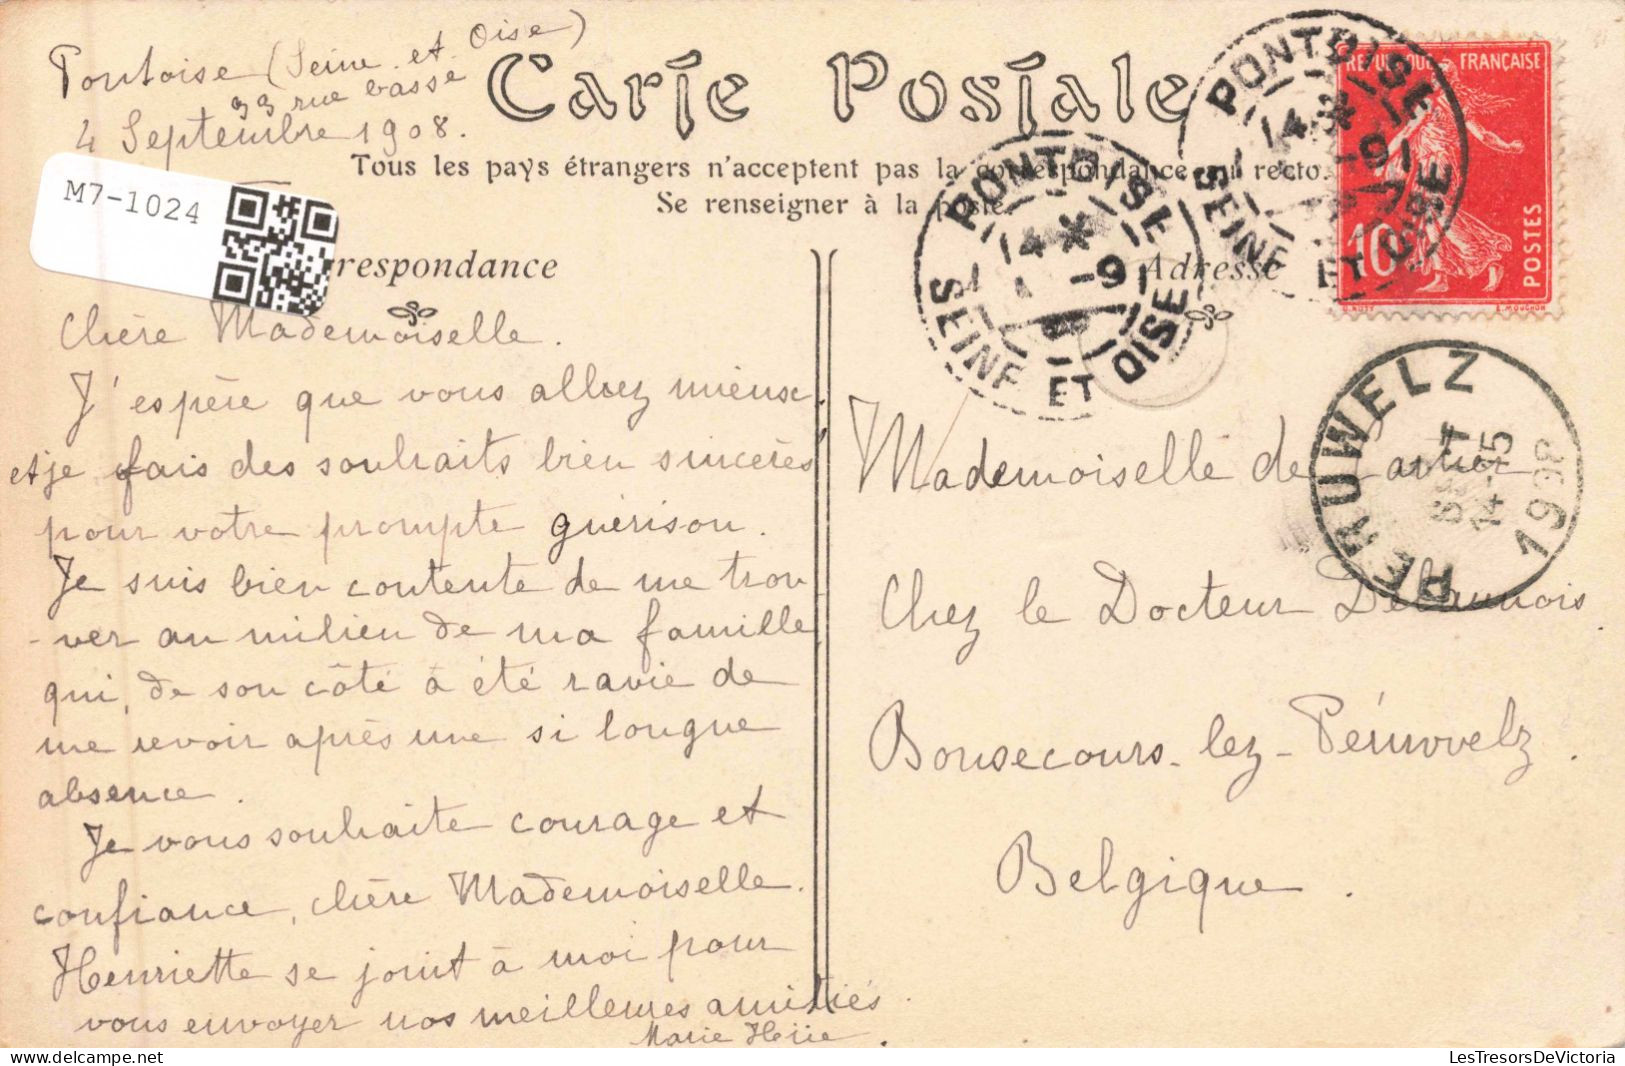 Pontoise (Seine et Oise)
33 rue basse
4 Septembre 1908.
Carte Postale
Tous les pays étrangers n'acceptent pas la correspondance au recto.
Se renseigner à la poste.
M7-1024
respondance
Adresse
RÉPUBLIQUE FRANÇAISE
10
POSTES
O. ROTY
L. MOUCHON
PONTOISE
4 * -9
SEINE ET OISE
PONTOISE
4 * -9
SEINE ET OISE
PERUWELZ
SEPT
14-15
1908
Chère Mademoiselle.
J'espère que vous allez mieux
et je fais des souhaits bien sincères
pour votre prompte guérison.
Je suis bien contente de me trou
-ver au milieu de ma famille
qui, de son côté à été ravie de
me revoir après une si longue
absence.
Je vous souhaite courage et
confiance, chère Mademoiselle.
Henriette se joint à moi pour
vous envoyer nos meilleures amitiés.
Marie
Mademoiselle de Cartier
Chez le Docteur Delaunois
Bonsecours-lez-Péruwelz.
Belgique.
LesTresorsDeVictoria